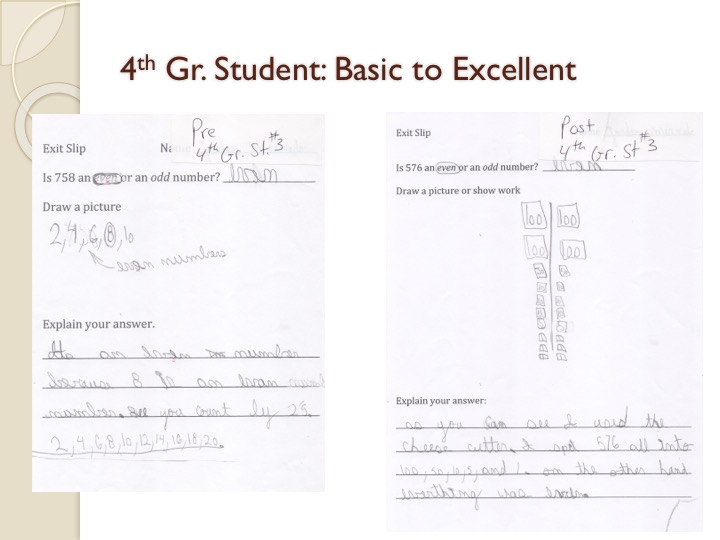 4th Gr. Student: Basic to Excellent
Pre
4th Gr. St. #3
Exit Slip Na
Is 758 an even or an odd number? evan
Draw a picture
2, 4, 6, 8, 10
evan numbers
Explain your answer.
an evan number
because 8 is an evan
number. you count by 2s.
2, 4, 6, 8, 10, 12, 14, 16, 18, 20.
Post
4th Gr. St #3
Exit Slip
Is 576 an even or an odd number? evan
Draw a picture or show work
100 100
100 100
Explain your answer:
as you can see I used the
cheese cutter. I 576 all into
100, 50, 10, 5, and 1. on the other hand
evorthing was